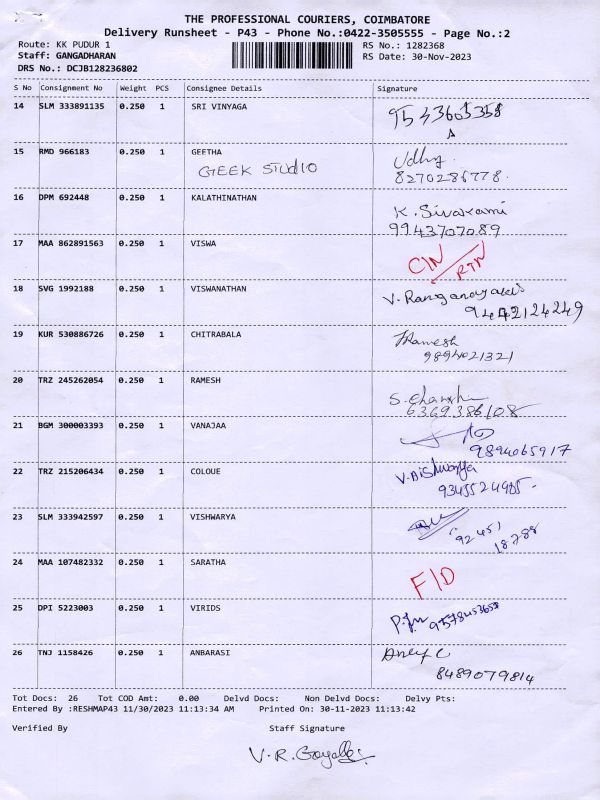 THE PROFESSIONAL COURIERS, COIMBATORE
Delivery Runsheet - P43 - Phone No.:0422-3505555 - Page No.:2
Route: KK PUDUR 1 RS No.: 1282368
Staff: GANGADHARAN RS Date: 30-Nov-2023
DRS No.: DCJB128236802
S No Consignment No Weight PCS Consignee Details Signature
14 SLM 333891135 0.250 1 SRI VINYAGA
15 RMD 966183 0.250 1 GEETHA
GEEK STUDIO 8270286778.
16 DPM 692448 0.250 1 KALATHINATHAN K. Sivakami
9943707089
17 MAA 862891563 0.250 1 VISWA CIN/RTN
18 SVG 1992188 0.250 1 VISWANATHAN V. Ranganayaki
9442124249
19 KUR 530886726 0.250 1 CHITRABALA Ramesh
9894021321
20 TRZ 245262054 0.250 1 RAMESH
6369386108
21 BGM 300003393 0.250 1 VANAJAA
9894065917
22 TRZ 215206434 0.250 1 COLOUE V. Aishwarya
9345524985.
23 SLM 333942597 0.250 1 VISHWARYA
92451
18788
24 MAA 107482332 0.250 1 SARATHA F/D
25 DPI 5223003 0.250 1 VIRIDS
26 TNJ 1158426 0.250 1 ANBARASI
8489079814
Tot Docs: 26 Tot COD Amt: 0.00 Delvd Docs: Non Delvd Docs: Delvy Pts:
Entered By :RESHMAP43 11/30/2023 11:13:34 AM Printed On: 30-11-2023 11:13:42
Verified By Staff Signature